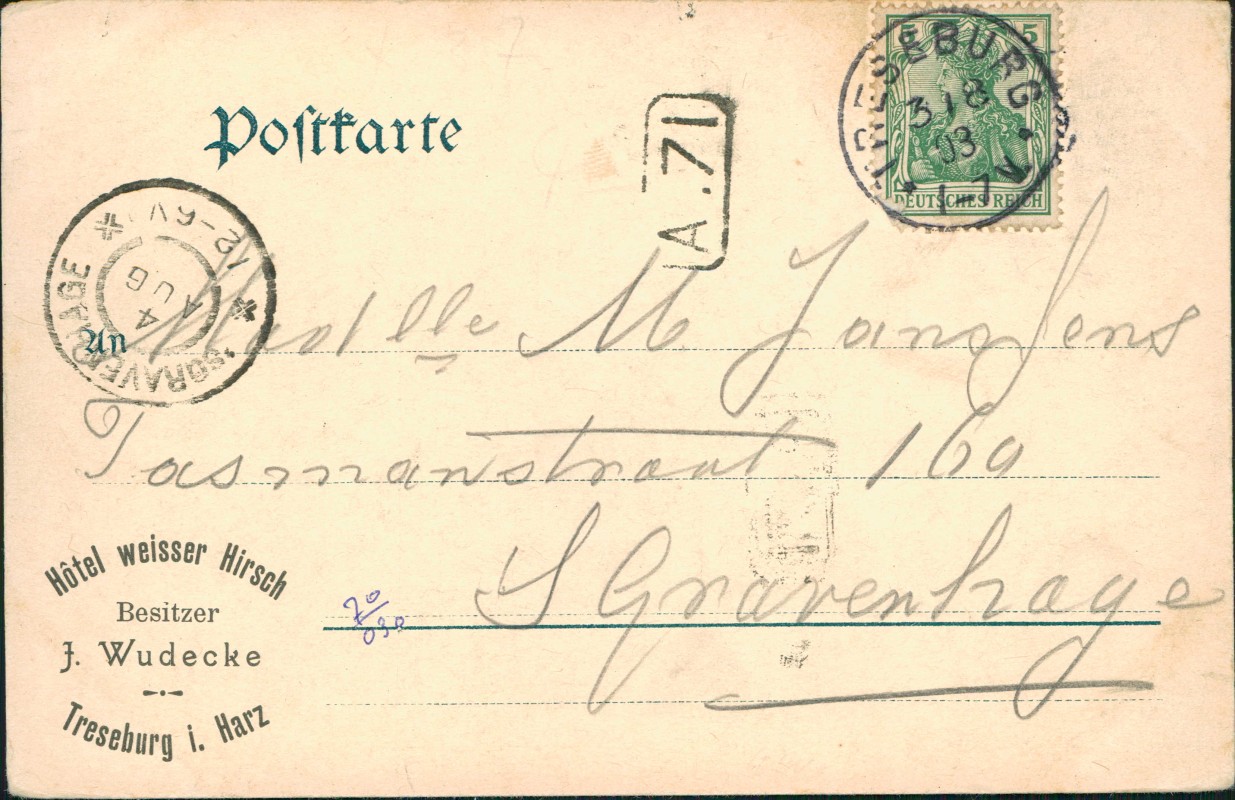 Postkarte
5 5
DEUTSCHES REICH
TRESEBURG
3 18
03
1-7 V.
A.71
12-6V
4
AUG
'SGRAVENHAGE
An Madlle M Janssens
Tasmanstraat 169
S Gravenhage
Hôtel weisser Hirsch
Besitzer
J. Wudecke
Treseburg i. Harz
20
030